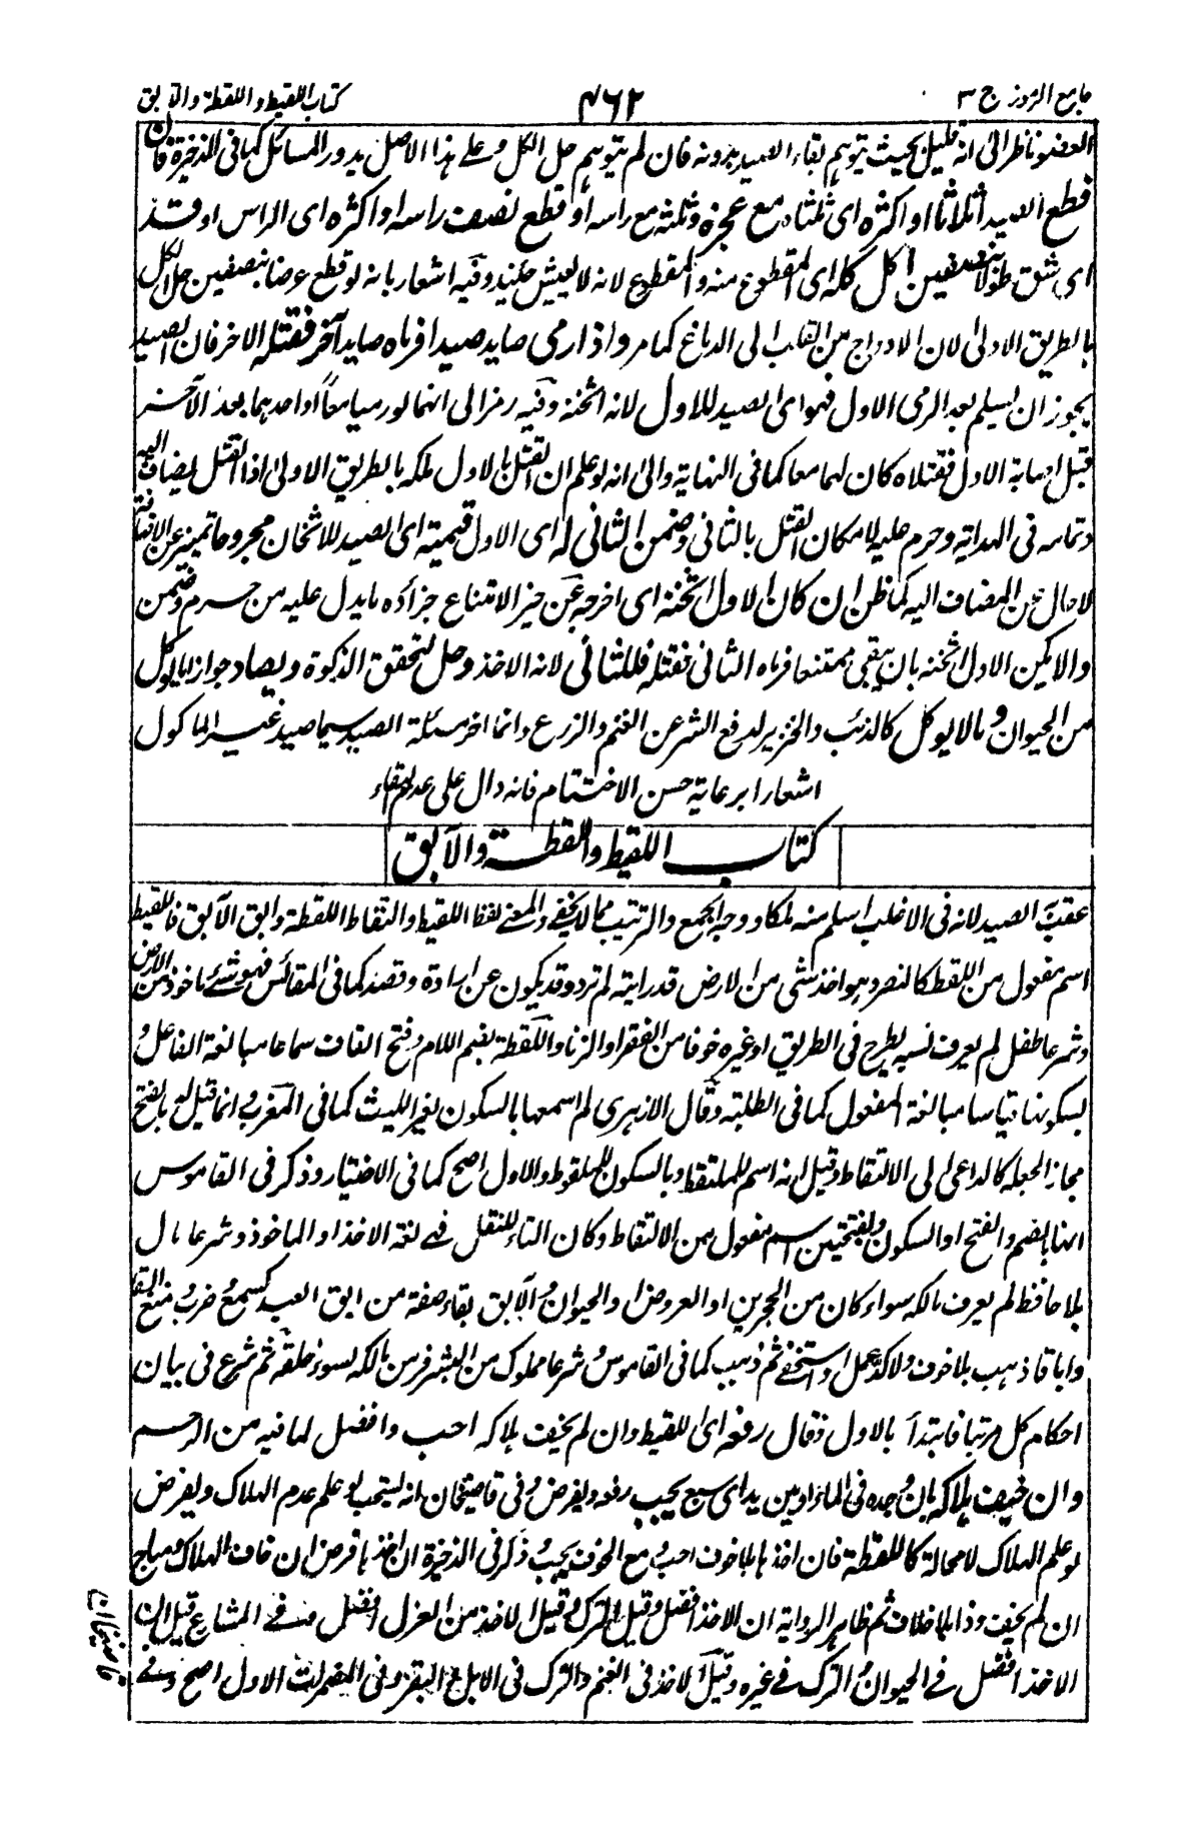 جامع الرموز ج ٣
٤٦٢
كتاب اللقيط واللقطة والآبق
العضو ناظرا الى انه قليل بحيث يتوهم بقاء الصيد بدونه فان لم يتوهم حل الكل وعلى هذا الاصل يدور المسائل كما فى الذخيرة فان
قطع الصيد اثلاثا او اكثره اى ثلثاه مع عجزه وثلثه مع راسه او قطع نصف راسه او اكثره اى الراس او قد
اى شق طولا بنصفين اكل كله اى المقطوع منه والمقطوع لانه لا يعيش حينئذ وفيه اشعار بانه لو قطع عرضا بنصفين حل الكل
بالطريق الاولى لان الاوداج من القلب الى الدماغ كما مر واذا رمى صايد صيدا فرماه صايد آخر فقتله الاخر فان الصيد
يجوز ان يسلم بعد الرمى الاول فهو اى الصيد للاول لانه اثخنه وفيه رمز الى انهما لو رميا معًا او احدهما بعد الآخر
قبل اصابة الاول فقتلاه كان لهما معا كما فى النهاية والى انه لو علم ان القتل بالاول ملكه بالطريق الاولى اذا القتل يضاف اليه
وتمامه فى الهداية وحرم عليه لامكان القتل بالثانى وضمن الثانى له اى الاول قيمته اى الصيد للاثخان مجروحا تميز عن الاضافة
لا حال عن المضاف اليه كما ظن ان كان الاول اثخنه اى اخرجه عن حيز الامتناع جزاؤه ما يدل عليه من حرم وضمن
والا يكن الاول اثخنه بان يبقى ممتنعا فرماه الثانى فقتله فللثانى لانه الاخذ وحل لتحقق الذكوة ويصاد جوازا ما يوكل
من الحيوان وما لا يوكل كالذئب والخنزير لدفع الشر عن الغنم والزرع وانما اخر مسئلة الصيد سيما صيد غير الماكول
اشعارا برعاية حسن الاختتام فانه دال على عدم البقاء
كتاب اللقيط واللقطة والآبق
عقب الصيد لانه فى الاغلب اسلم منه ملكا ووجه الجمع والترتيب مما لا يخفى والمعنى لقط اللقيط والتقاط اللقطة وابق الآبق فاللقيط
اسم مفعول من اللقط كالنصر وهو اخذ شئ من الارض قد رايته لم ترده وقد يكون عن ارادة وقصد كما فى المقائس فهو شئ ماخوذ من الارض
وشرعا طفل لم يعرف نسبه يطرح فى الطريق او غيره خوفا من الفقر او الزنا واللقطة بضم اللام وفتح القاف سماعا مبالغة الفاعل و
بسكونها قياسا مبالغة المفعول كما فى الطلبة وقال الازهرى لم اسمعها بالسكون لغير الليث كما فى المغرب وانما قيل له بالفتح
مجازا لجعله كالداعى الى الالتقاط وقيل انه اسم للملتقط وبالسكون للملقوط والاول اصح كما فى الاختيار وذكر فى القاموس
انها بالضم والفتح او السكون وبفتحتين اسم مفعول من الالتقاط وكان التاء للنقل فهى لغة الاخذ او الماخوذ وشرعا مال
بلا حافظ لم يعرف مالكه سواء كان من الحجرين او العروض او الحيوان والآبق بقاء صفة من ابق العبد كسمع وضرب ومنع ابقا
واباقا ذهب بلا خوف ولا كد عمل او استخفى ثم ذهب كما فى القاموس وشرعا مملوك من البشر فر من مالكه لسوء خلقه ثم شرع فى بيان
احكام كل مرتبا فابتدأ بالاول فقال رفعه اى اللقيط وان لم يخف هلاكه احب وافضل لما فيه من الترحم
وان خيف هلاكه بان وجده فى الماء او بين يداى سبع يجب رفعه ويفرض وفى قاضيخان انه يستحب لو علم عدم الهلاك ويفرض
لو علم الهلاك لا محالة كاللقطة فان اخذها بلا خوف احب ومع الخوف يجب وذكر فى الذخيرة ان اخذها فرض ان خاف الهلاك ومباح
ان لم يخف وذا بلا خلاف ثم ظاهر الرواية ان الاخذ افضل وقيل الترك وقيل الاخذ من العزل افضل منه فى المشاع قيل ان
الاخذ افضل فى الحيوان والترك فى غيره وقيل الاخذ فى الغنم والترك فى الابل والبقر وفى المضمرات الاول اصح وفى
قاضيخان